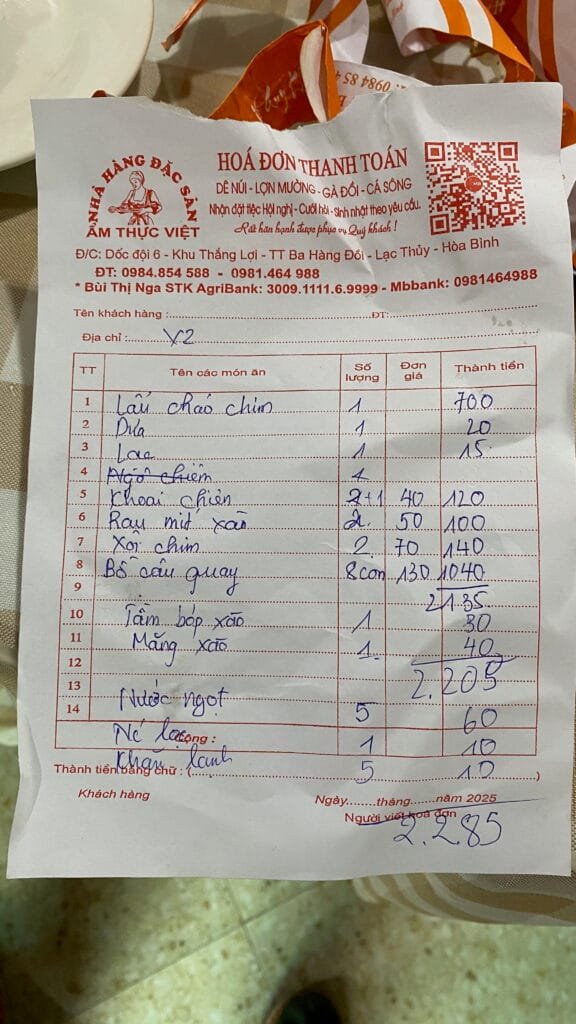 0984 85 4
NHÀ HÀNG ĐẶC SẢN
ẨM THỰC VIỆT
HOÁ ĐƠN THANH TOÁN
DÊ NÚI - LỢN MƯỜNG - GÀ ĐỒI - CÁ SÔNG
Nhận đặt tiệc Hội nghị - Cưới hỏi - Sinh nhật theo yêu cầu.
Rất hân hạnh được phục vụ Quý khách !
Đ/C: Dốc đội 6 - Khu Thắng Lợi - TT Ba Hàng Đồi - Lạc Thủy - Hòa Bình
ĐT: 0984.854 588 - 0981.464 988
* Bùi Thị Nga STK AgriBank: 3009.1111.6.9999 - Mbbank: 0981464988
Tên khách hàng : ĐT:
Địa chỉ : V2
TT Tên các món ăn Số lượng Đơn giá Thành tiền
1 Lẩu cháo chim 1 700
2 Dưa 1 20
3 Lạc 1 15
4 Ngô chiêm 1
5 Khoai chiên 2+1 40 120
6 Rau mít xào 2 50 100
7 Xôi chim 2 70 140
8 Bồ câu quay 8 con 130 1040
9 2135
10 Tầm bóp xào 1 30
11 Măng xào 1 40
12 2.205
13
14 Nước ngọt 5 60
Cộng :
Né lạc 1 10
Thành tiền bằng chữ : (
Khăn lạnh 5 10 )
Khách hàng Ngày tháng năm 2025
Người viết hoá đơn
2.285